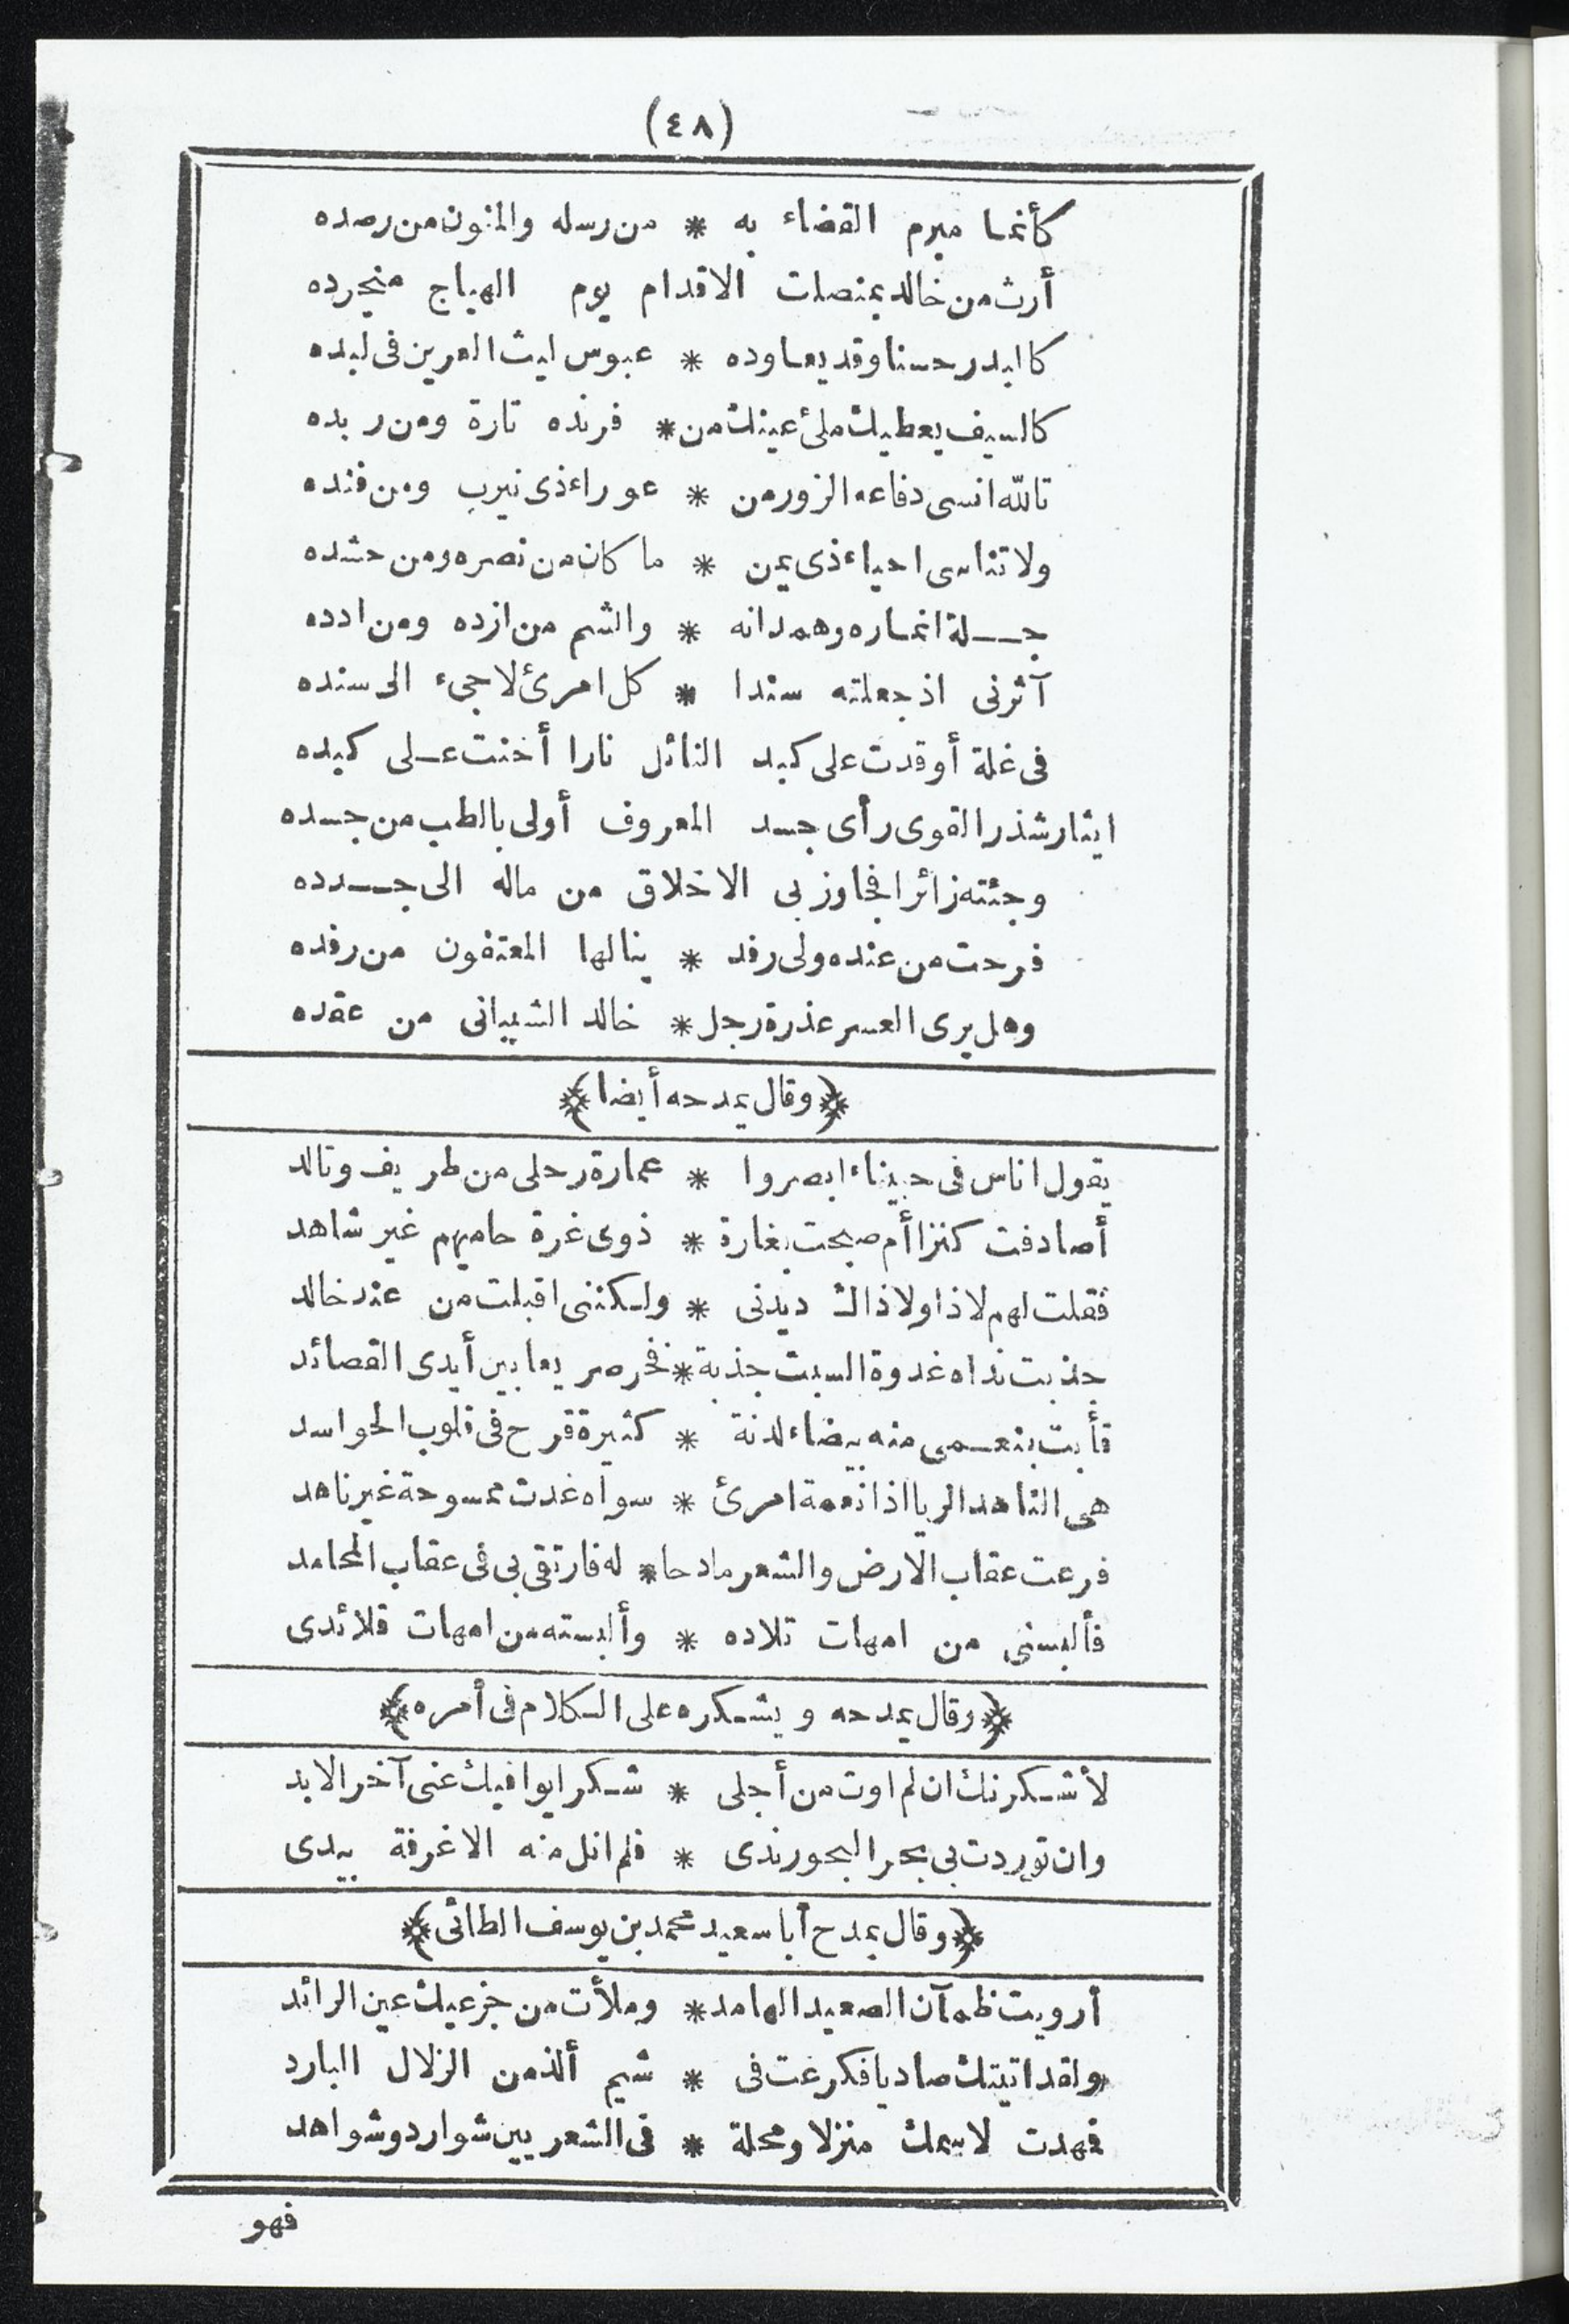 (٤٨)
كأنما مبرم القضاء به * من رسله والمنون من رصده
أرث من خالد بمنصلت الاقدام يوم الهياج منجرده
كالبدر حسنا وقد يعاوده * عبوس ليث العرين فى لبده
كالسيف يعطيك ملئ عينك من * فرنده تارة ومن ربده
تالله انسى دفاعه الزور من * عوراء ذى نيرب ومن فنده
ولا تناسى احياء ذى يمن * ما كان من نصره ومن حشده
جـلة انماره وهمدانه * والشم من ازده ومن ادده
آثرنى اذ جعلته سندا * كل امرئ لاجىء الى سنده
فى غلة أوقدت على كبد النائل نارا أخنت عـلى كبده
ايثار شذر القوى رأى جسد المعروف أولى بالطب من جسده
وجئته زائرا فجاوز بى الاخلاق من ماله الى جـدده
فرحت من عنده ولى رفد * ينالها المعتفون من رفده
وهل يرى العسر عذرة رجل * خالد الشيبانى من عقده
﴿وقال يمدحه أيضا﴾
يقول اناس فى حبيناء ابصروا * عمارة رحلى من طريف وتالد
أصادفت كنزا أم صبحت بغارة * ذوى غرة حاميهم غير شاهد
فقلت لهم لا ذا ولا ذاك ديدنى * ولـكننى اقبلت من عند خالد
جذبت نداه غدوة السبت جذبة * فخر صريعا بين أيدى القصائد
فأبت بنعـمى منه بيضاء لدنة * كثيرة قرح فى قلوب الحواسد
هى الناهد الريا اذا نعمة امرئ * سواه غدت ممسوحة غير ناهد
فرعت عقاب الارض والشعر مادحا * له فارتقى بى فى عقاب المحامد
فألبسنى من امهات تلاده * وألبسته من امهات قلائدى
﴿وقال يمدحه ويشـكره على الـكلام فى أمره﴾
لأشـكرنك ان لم اوت من أجلى * شـكرا يوافيك عنى آخر الابد
وان توردت بى بحر البحور ندى * فلم انل منه الا غرفة بيدى
﴿وقال يمدح أبا سعيد محمد بن يوسف الطائى﴾
أرويت ظمآن الصعيد الهامد * وملأت من جزعيك عين الرائد
ولقد اتيتك صاديا فكرعت فى * شيم ألذ من الزلال البارد
فمهدت لاسمك منزلا ومحلة * فى الشعر بين شوارد وشواهد
فهو